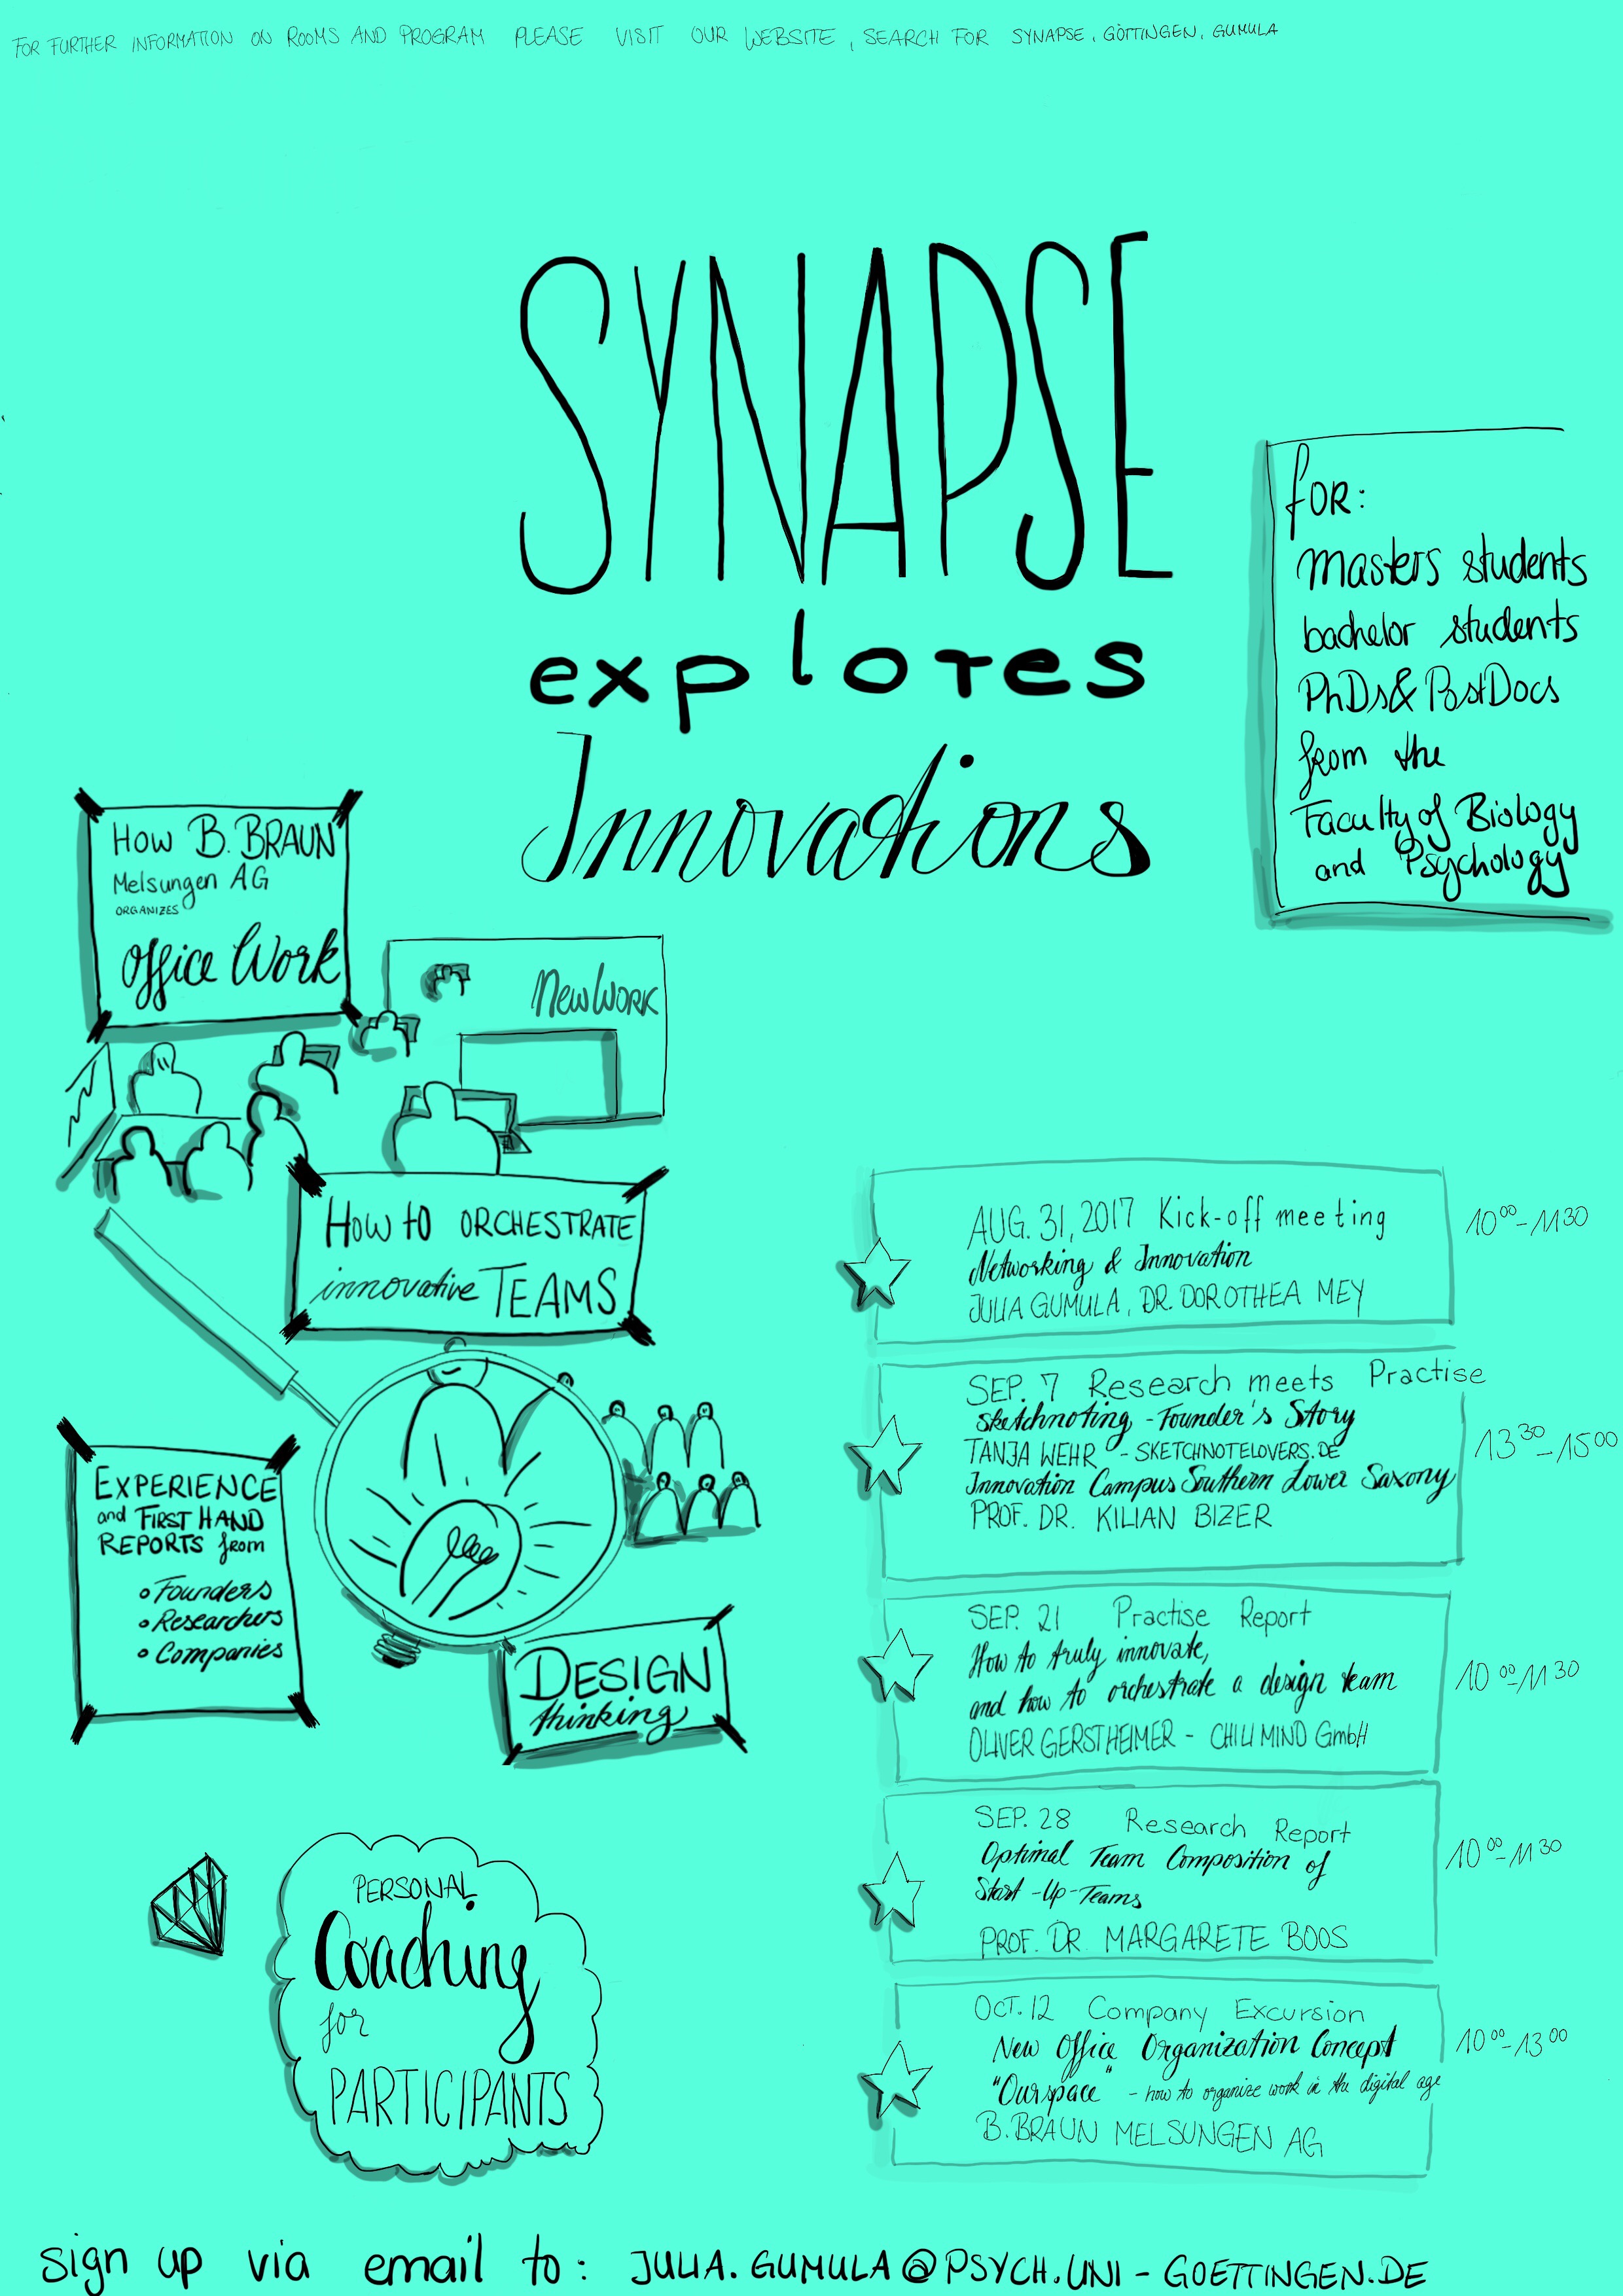 FOR FURTHER INFORMATION ON ROOMS AND PROGRAM PLEASE VISIT OUR WEBSITE, SEARCH FOR SYNAPSE, GÖTTINGEN, GUMULA
SYNAPSE
explores
Innovations
for:
masters students
bachelor students
PhDs & PostDocs
from the
Faculty of Biology
and Psychology
How B. BRAUN
Melsungen AG
ORGANIZES
Office Work
New WORK
How to ORCHESTRATE
innovative TEAMS
EXPERIENCE
and FIRST HAND
REPORTS from
• Founders
• Researchers
• Companies
DESIGN
thinking
PERSONAL
Coaching
for
PARTICIPANTS
AUG. 31, 2017 Kick-off meeting
Networking & Innovation
JULIA GUMULA, DR. DOROTHEA MEY
10⁰⁰-11³⁰
SEP. 7 Research meets Practise
Sketchnoting - Founder's Story
TANJA WEHR - SKETCHNOTELOVERS.DE
Innovation Campus Southern Lower Saxony
PROF. DR. KILIAN BIZER
13³⁰-15⁰⁰
SEP. 21 Practise Report
How to truly innovate,
and how to orchestrate a design team
OLIVER GERSTHEIMER - CHILI MIND GmbH
10⁰⁰-11³⁰
SEP. 28 Research Report
Optimal Team Composition of
Start-Up-Teams
PROF. DR. MARGARETE BOOS
10⁰⁰-11³⁰
OCT. 12 Company Excursion
New Office Organization Concept
"Ourspace" - how to organize work in the digital age
B. BRAUN MELSUNGEN AG
10⁰⁰-13⁰⁰
sign up via email to: JULIA.GUMULA@PSYCH.UNI-GOETTINGEN.DE